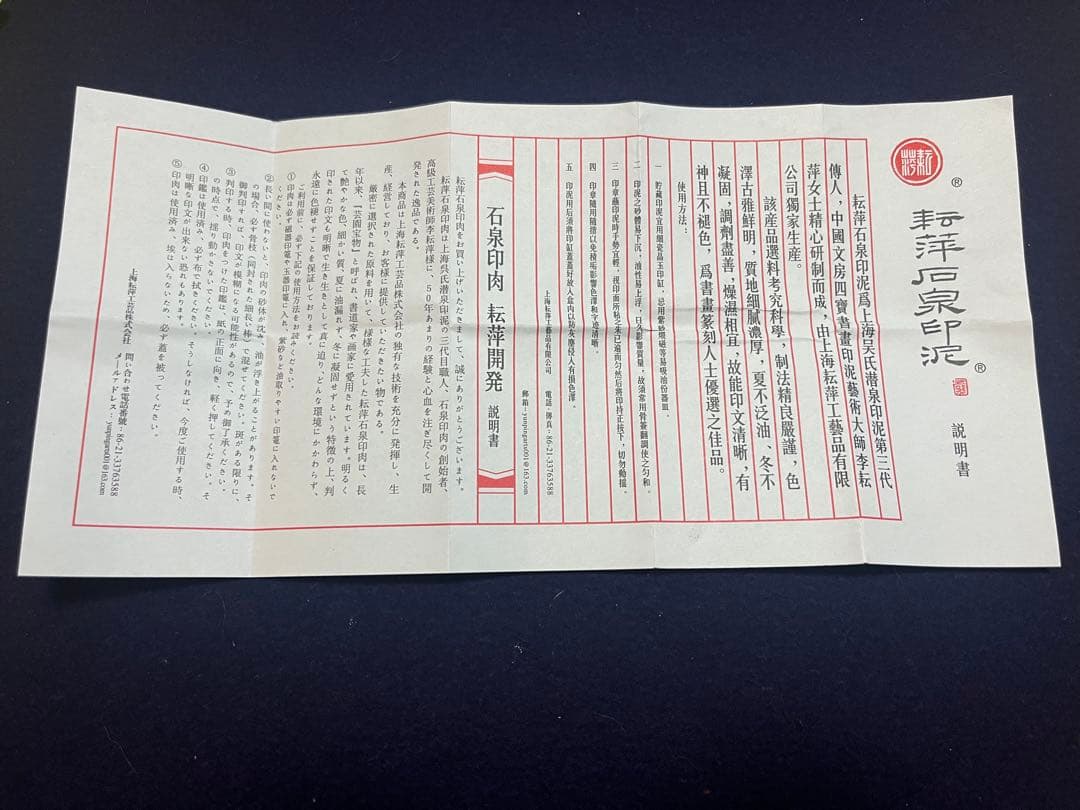 耘萍
®
耘萍石泉印泥
®
説明書
耘萍石泉印泥爲上海吴氏潜泉印泥第三代
傳人，中國文房四寶書畫印泥藝術大師李耘
萍女士精心研制而成，由上海耘萍工藝品有限
公司獨家生産。
該産品選料考究科學，制法精良嚴謹，色
澤古雅鮮明，質地細膩濃厚，夏不泛油、冬不
凝固，調劑盡善，燥濕相宜，故能印文清晰，有
神且不褪色，爲書畫篆刻人士優選之佳品。
使用方法：
一 貯藏印泥宜用細瓷晶玉印缸，忌用紫砂明磁等易吸油份器皿。
二 印泥之砂體易下沉，油性易上浮，日久影響質量，故須常用骨簽翻調使之匀和。
三 印章蘸印泥時手勢宜輕，視印面所粘之朱已遍而匀然后將印持正按下，切勿動摇。
四 印章隨用隨揩以免積垢影響色澤和字迹清晰。
五 印泥用后須將印缸蓋蓋好放入盒内以防灰塵侵入有損色澤。
上海耘萍工藝品有限公司
電話·傳真：86-21-33763588
郵箱－yunpingaru001@163.com
石泉印肉 耘萍開発 説明書
耘萍石泉印肉をお買い上げいただきまして、誠にありがとうございます。
耘萍石泉印肉は上海呉氏潜泉印泥の三代目職人、石泉印肉の創始者、
高級工芸美術師李耘萍様に、50年あまりの経験と心血を注ぎ尽くして開
発された逸品である。
本商品は上海耘萍工芸品株式会社の独有な技術を充分に発揮し、生
産、経営しており、お客様に提供していただきたい物である。
厳密に選択された原料を用いて、様様な工夫した耘萍石泉印肉は、長
年以来、『芸園宝物』と呼ばれ、書道家や画家に愛用されています。明るく
て艶やかな色、細かい質、夏に油漏れず、冬に凝固せずという特徴の上、判
印された印文も明晰で生き生きとして真に迫り、どんな環境にかかわらず、
永遠に色褪せずことを保証しております。
ご利用前に、必ず下記の使用方法をお読みください。
①印肉は必ず磁器印竈や玉器印竈に入れ、紫砂など油取りやすい印竈に入れないで
ください。
②長い間に使わないと、印肉の砂体が沈み、油が浮き上がることがあります。そ
の場合、必ず骨枝（同封された細長い棒）で混ぜてください。斑がある限りに、
御判印すれば、印文が模糊になる可能性があるので、予め御了承ください。
③判印する時、印肉をつけた印鑑は、紙の正面に向き、軽く押してください。そ
の時点で、揺り動かさないでください。
④印鑑は使用済み、必ず布で拭きください。そうしなければ、今度ご使用する時、
明晰な印文が出来ない恐れもあります。
⑤印肉は使用済み、埃は入らないため、必ず蓋を被ってください。
上海耘萍工芸品株式会社 問い合わせ電話番號：86-21-33763588
メールァドレス：yunpingaru001@163.com